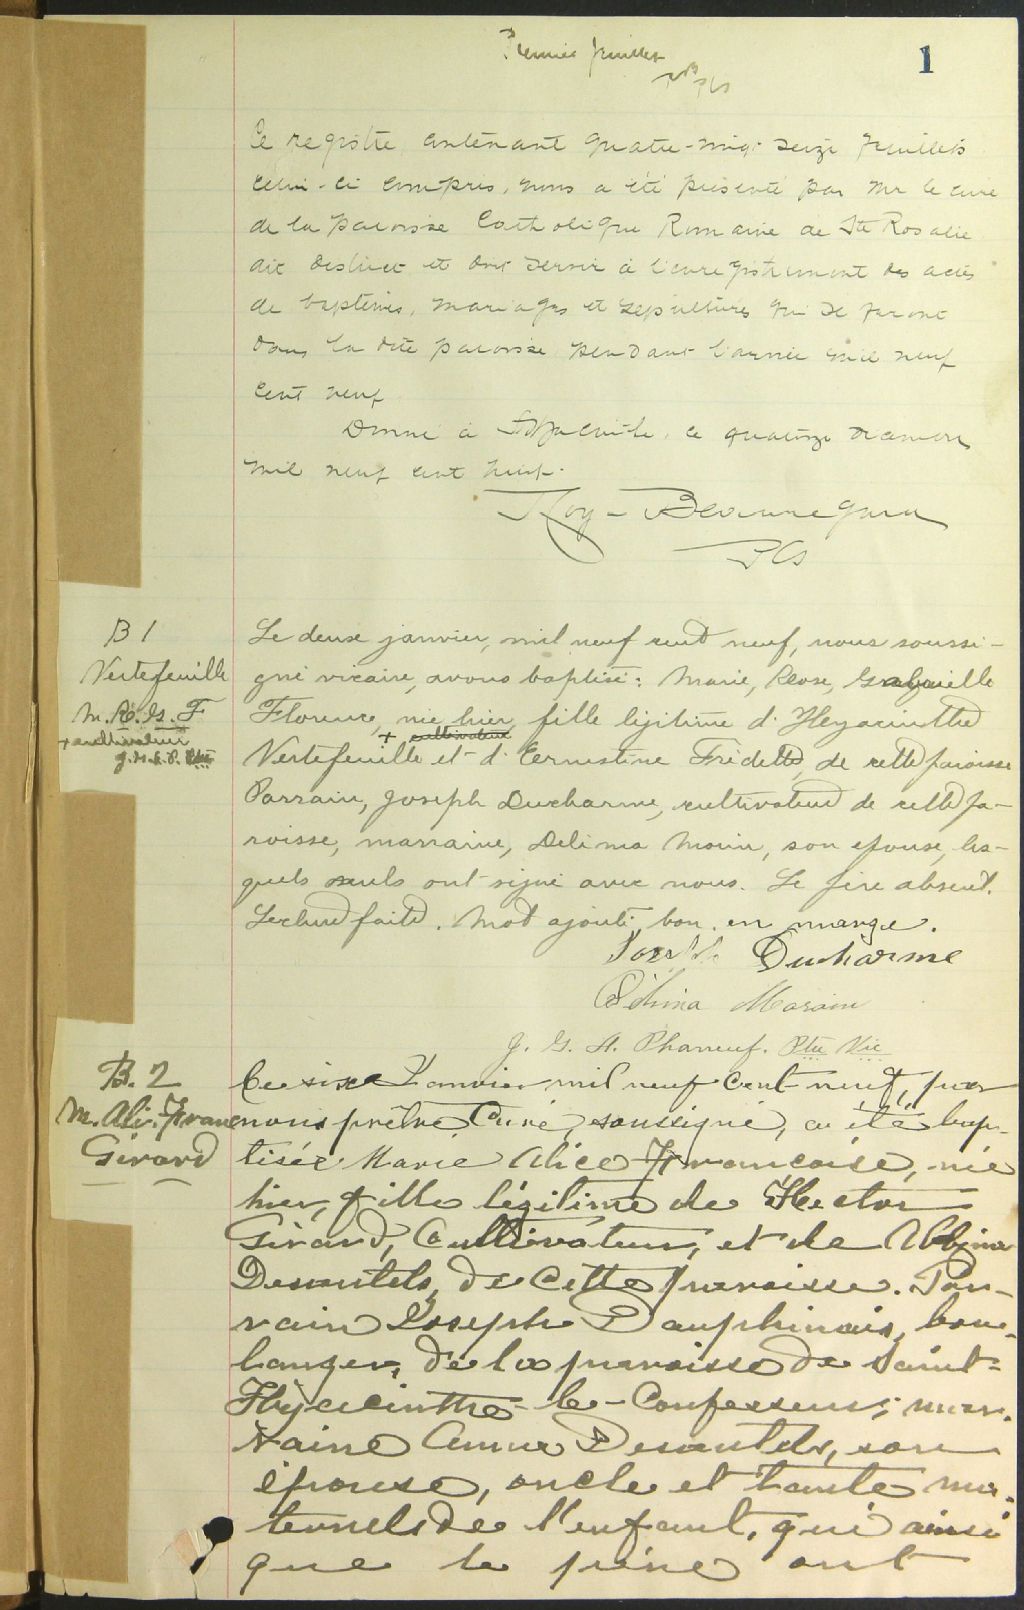 Premier feuillet
1
Ce registre contenant quatre-vingt seize feuillets
celui-ci compris, nous a été présenté par Mr le curé
de la paroisse Catholique Romaine de Ste Rosalie
dit district et doit servir à l'enregistrement des actes
de baptêmes, mariages et sépultures qui se feront
dans la dite paroisse pendant l'année mil neuf
cent neuf
Donné à St Hyacinthe, ce quatorze décembre
mil neuf cent huit.
Roy - Beauregard
PCS
B 1
Vertefeuille
M. R. G. F.
+ cultivateur
J. G. A. P. Ptre
Le deux janvier, mil neuf cent neuf, nous soussi-
gné vicaire, avons baptisé: Marie, Rose, Grabrielle
Florence, née hier, fille légitime d'Hyacinthe
+ cultivateur
Vertefeuille et d'Ernestine Fredette, de cette paroisse
Parrain, Joseph Ducharme, cultivateur de cette pa-
roisse, marraine, Délima Morin, son épouse, les-
quels seuls ont signé avec nous. Le père absent.
Lecture faite. Mot ajouté, bon. en marge.
Joseph Ducharme
Délima Morain
J. G. A. Phaneuf. Ptre Vic
B. 2
M. Ali. Franc
Girard
Le six Janvier mil neuf cent neuf, par
nous prêtre Curé, soussigné, a été bap-
tisée Marie Alice Françoise, née
hier, fille légitime de Hector
Girard, Cultivateur, et de Albina
Desautels, de cette paroisse. Par-
rain Joseph Dauphinais, bou-
langer, de la paroisse de Saint-
Hyacinthe-le-Confesseur; mar-
raine Anna Desautels, son
épouse, oncle et tante ma-
ternels de l'enfant, qui ainsi
que le père ont